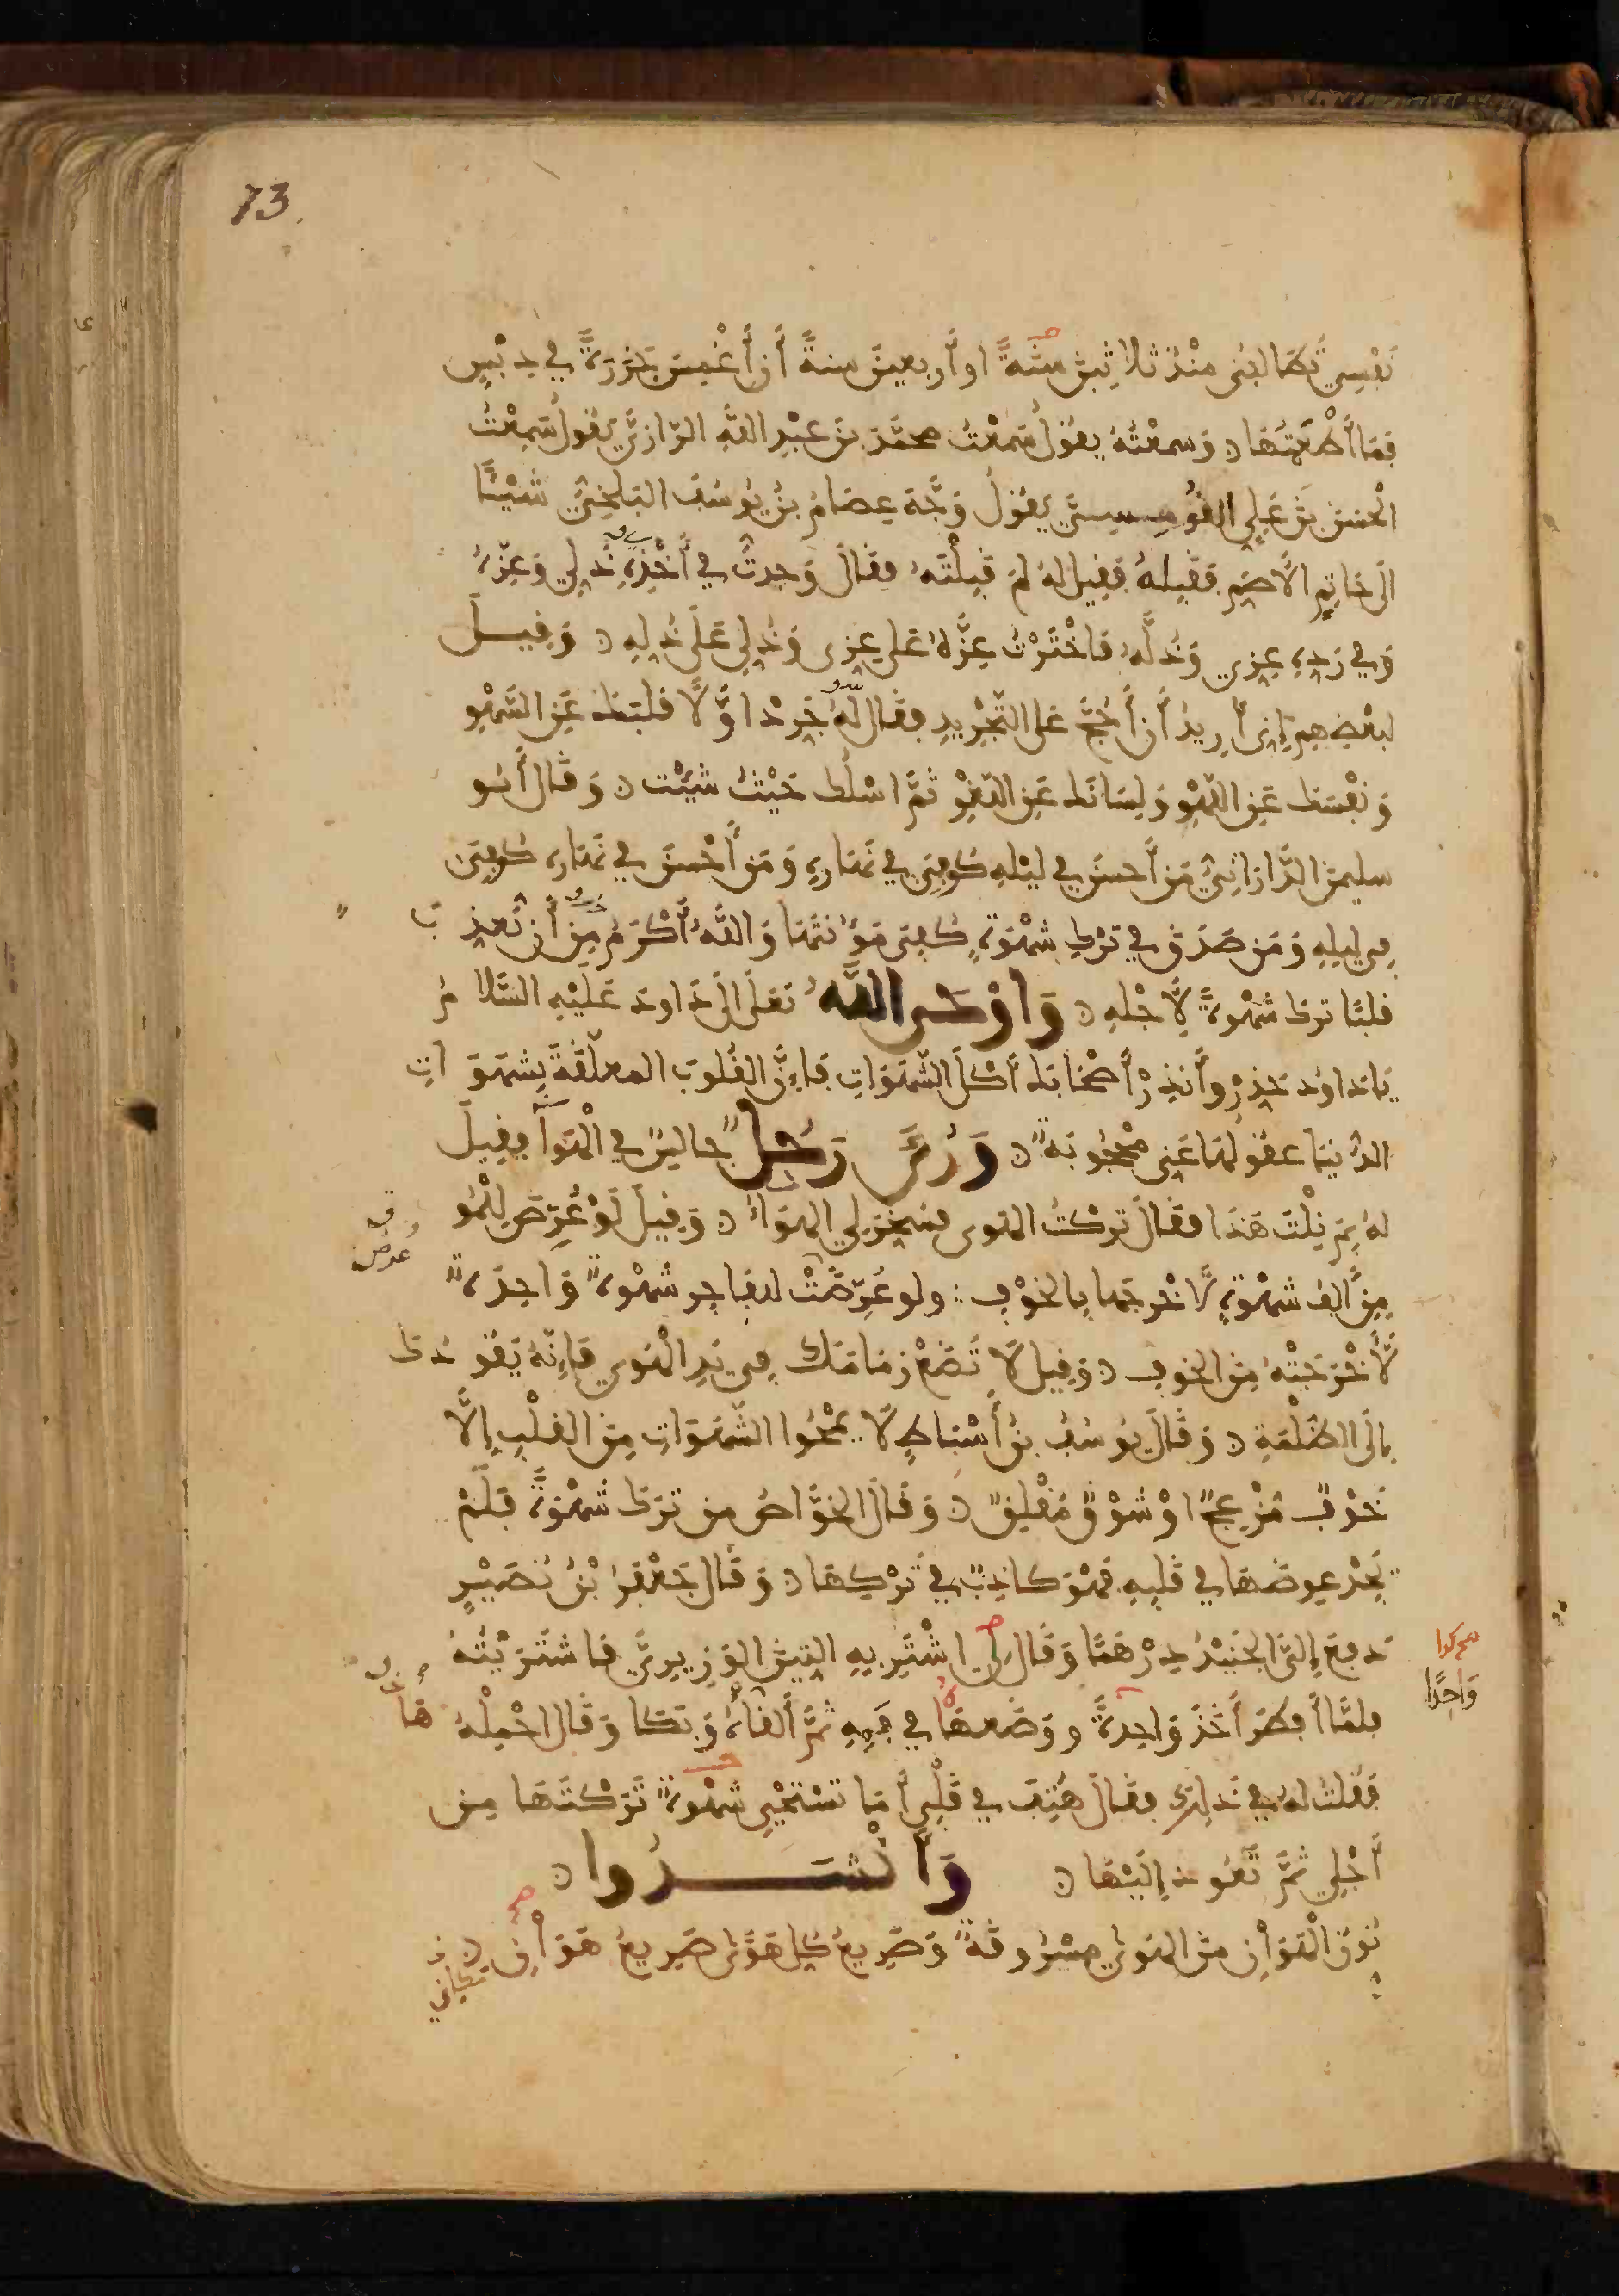 73.
نَفْسِي تُطَالِبُنِي مُنْذُ ثَلَاثِينَ سَنَةً او أَربعينَ سنةً أَن أَغْمِسَ جَزَرَةً في دِبْسٍ
فَمَا أَطْعَمْتُهَا وَسمعْتُهُ يقُولُ سَمعْتُ محمَّدَ بنَ عبْدِ اللَّهِ الرّازيَّ يَقُولُ سَمِعْتُ
الْحسَنَ بنَ عَلِيٍ القُومِسِيَّ يَقُولُ وَجَّهَ عِصَامُ بنُ يُوسُفَ البَلخِيُّ شَيْئًا
الَى حَاتِمِ الأَصَمِ فَقَبِلهُ فقِيلَ لهُ لِمَ قَبِلْتَهُ فقالَ وَجدتُ في أَخْذِهِ ذُلِي وَعِزَّهُ
وَفي رَدِهِ عِزِي وَذُلَّهُ فَاخْتَرْتُ عِزَّهُ عَلى عِزِى وَذُلِي عَلَى ذُلِهِ وَقِيلَ
لبَعْضِهِم إِنِى أُرِيدُ أَن أَحُجَّ عَلى التَّجْرِيدِ فقَالَ لهُ جَرِدْ اوَّلًا قلبَكَ عَنِ السَّهْوِ
وَنَفْسَكَ عَنِ اللَّهْوِ وَلِسَانَكَ عَنِ اللَّغْوِ ثمَّ اسْلُكْ حَيْثُ شِئْت وَقَالَ أَبُو
سليمنَ الدَّارَانِيُّ مَن أَحسَنَ في ليْلهِ كُوفِىَ في نَهَارِهِ وَمَن أَحْسَنَ في نَهَارِهِ كُوفِىَ
في ليلِهِ وَمَن صَدَقَ في تَرْكِ شهْوَةٍ كُفِىَ مَؤُنَتَهَا وَاللَّهُ أَكْرَمُ مِن أَن يُعَذِبَ
قلبًا تركَ شهْوةً لِأَجْلِهِ وَاوْحَى اللَّهُ تعَلَى الَى دَاودَ عَلَيْهِ السَّلامُ
يَادَاوُدَ حَذِرْ وأَنذِرْ أَصْحَابَكَ أَكْلَ الشَّهَوَاتِ فَإِنَّ القُلُوبَ المعلَّقَةَ بِشَهَوَاتِ
الدُّنيَا عقُولُهَا عَنِى مَحْجُوبَةٌ وَرُءِىَ رَجُلٌ جَالِسٌ في الْهَوآءِ فقِيلَ
لهُ بِمَ نِلْتَ هَذَا فقَالَ تركتُ الهَوى فسُخِرَ لِي الهَوَاءُ وَقِيلَ لَوْ عُرِّضَ لِلْمُو
مِنِ أَلفُ شهْوَةٍ لَأَخْرجَهَا بِالخَوْفِ ولو عُرِّضَتْ للفَاجِرِ شَهْوةٌ وَاحِدَةٌ
لَأَخْرَجَتْهُ مِنَ الخوفِ وَقِيلَ لَا تَضَعْ زِمَامَكَ في يَدِ الْهَوى فَإِنَّهُ يَقُودكَ
إلَى الظُلْمَةِ وَقَالَ يُوسُفُ بنُ أَسْبَاطٍ لَا يَمْحُوا الشَّهَوَاتِ مِنَ القَلْبِ إِلَّا
خَوْفٌ مُزْعِجٌ اوْ شَوْقٌ مُقْلِقٌ وَقَالَ الخَوَّاصُ من تَرَكَ شَهْوَةً فَلَمْ
يَجِدْ عِوضَهَا في قَلْبِهِ فَهْوَ كَاذِبٌ في تَرْكِهَا وَقَالَ جَعْفَرُ بْنُ نُصَيْرٍ
دَفعَ إِلَيَّ الجُنَيْدُ دِرْهَمًا وَقَالَ لِي اشْتَرِ بِهِ التِينَ الوَزِيرِيَّ فَاشْتَرَيْتُهُ
فلمَّا أَفطَرَ أَخَذَ وَاحِدةً ووَضَعهَا في فَمِهِ ثمَّ أَلقَاهَا وَبَكَا وَقَالَ احْمِلْهُ
فَقُلتُ لهُ في ذَلِكَ فقَالَ هَتَفَ في قَلْبِي أَمَا تَسْتَحْيِي شَهْوةً تَرَكْتَهَا مِن
أَجْلِي ثمَّ تَعُودُ إِلَيْهَا وَأَنْشَدُوا
نُونُ الْهَوَانِ منَ الهَوَى مسْرُوقَةٌ وَصَرِيعُ كُلِ هَوًى صَرِيعُ هَوَانِ
عُرِض
وَاحِدًا
هَا